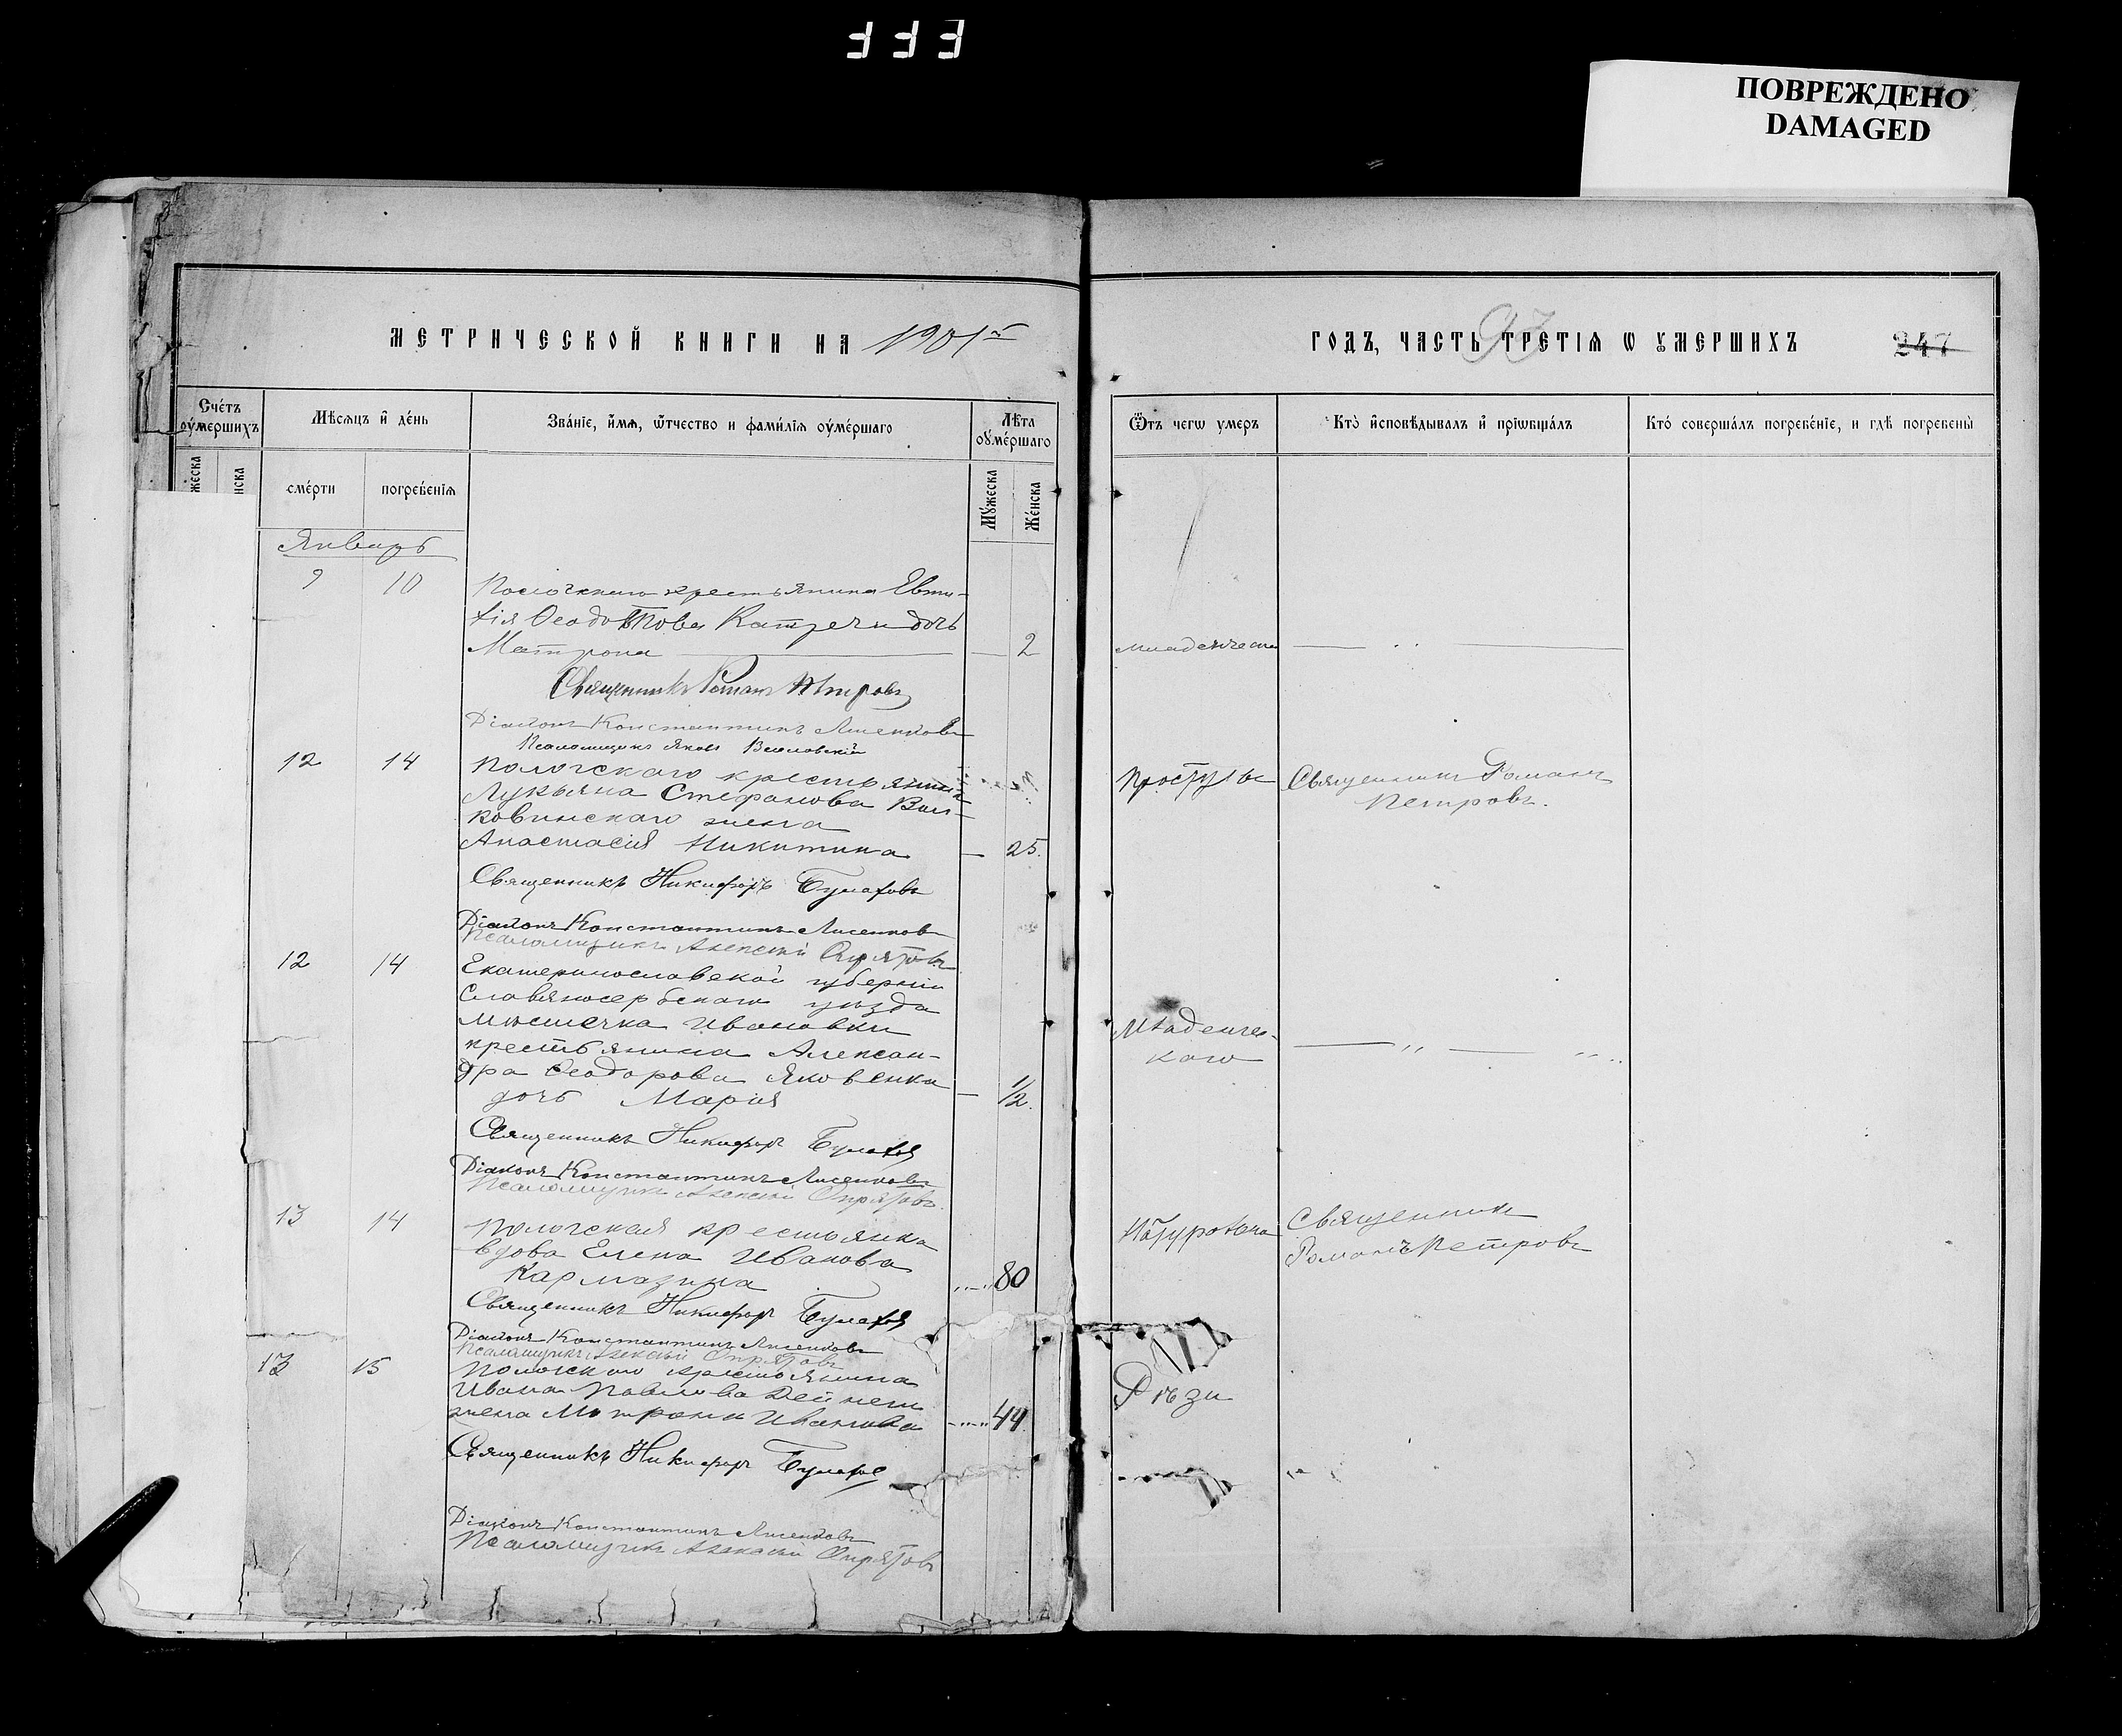 ПОВРЕЖДЕНО
DAMAGED
МЕТРИЧЕСКОЙ КНИГИ НА 1901й
ГОДЪ, ЧАСТЬ ТРЕТІѦ Ѡ ꙊМЕРШИХЪ
93
247
Сче́тъ ᲂу҆ме́ршихъ
Мѣсѧцъ и҆ де́нь
Зва́нїе, и҆́мѧ, ѿтчество и фами́лїѧ ᲂу҆ме́ршаго
Лѣ́та ᲂу҆ме́ршаго
Ѿ чегѡ умеръ
Кто̀ и҆сповѣ́дывалъ и҆ прїѡбща́лъ
Кто́ соверша́лъ погребе́нїе, и гдѣ̀ погребены̀
сме́рти
погребе́нїѧ
Мꙋ́жеска
Же́нска
Январь
9 10
крестьянина Евти-
хія Ѳеодотова дочь
Матрона 2
Священникъ Романъ Петровъ
Діаконъ Константинъ Лисенковъ
Псаломщикъ Яковъ
12 14
Пологскаго крестьянина
Лукьяна Стефанова Вол-
ковинскаго жена
Анастасія Никитина 25.
простуды
Священникъ Романъ
Петровъ.
Священникъ Никифоръ
Діаконъ Константинъ Лисенковъ
Псаломщикъ Алексій Опрятовъ
12 14
Екатеринославской губерніи
Славяносербскаго уѣзда
мѣстечка Ивановки
крестьянина Алексан-
дра Ѳеодорова Яковенка
дочь Марія 1/2.
Младенчес-
каго
Священникъ Никифоръ
Діаконъ Константинъ Лисенковъ
Псаломщикъ Алексій Опрятовъ
13 14
Пологская крестьянка
вдова Елена Иванова
Кармазина 80
Священникъ
Романъ Петровъ
Священникъ Никифоръ
Діаконъ Константинъ Лисенковъ
Псаломщикъ Алексій Опрятовъ
13 15
Пологскаго крестьянина
Ивана Павлова Дейнеги
жена Матрона Иванова 44.
Рѣзи
Священникъ Никифоръ
Діаконъ Константинъ Лисенковъ
Псаломщикъ Алексій Опрятовъ